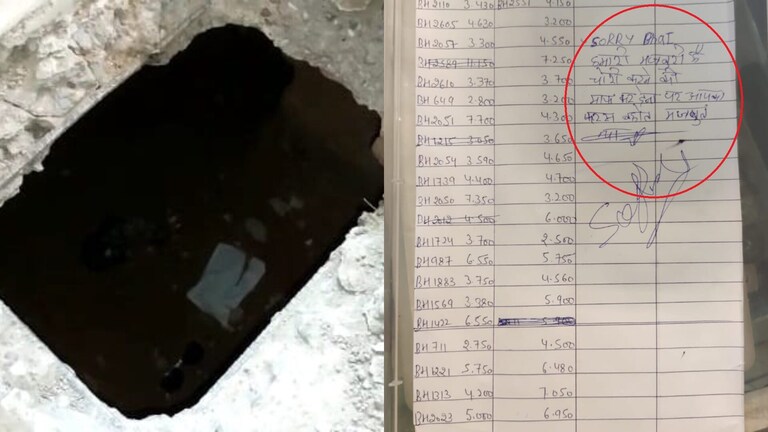 BH2110 3.430 BH2551 4.150
BH2605 4.630 3.200
BH2057 3.300 4.550 SORRY BhaI
BH2369 11.150 7.250 हमारी मजबूरी है
BH2610 3.370 3.700 चोरी करने की
BH649 2.800 3.200 माफ कर देना पर
BH2051 7.700 4.300
BH1215 3.050 3.650
BH2054 3.590 4.650
BH1739 4.400 4.700
BH2050 7.350 3.200
4.500 6.000 Sorry
BH1724 3.700 2.500
BH987 6.550 5.750
BH1883 3.750 4.560
BH1569 3.380 5.900
BH1422 6.550
BH711 2.750 4.500
BH1221 5.750 6.480
BH1313 4.200 7.050
BH2023 5.000 6.950